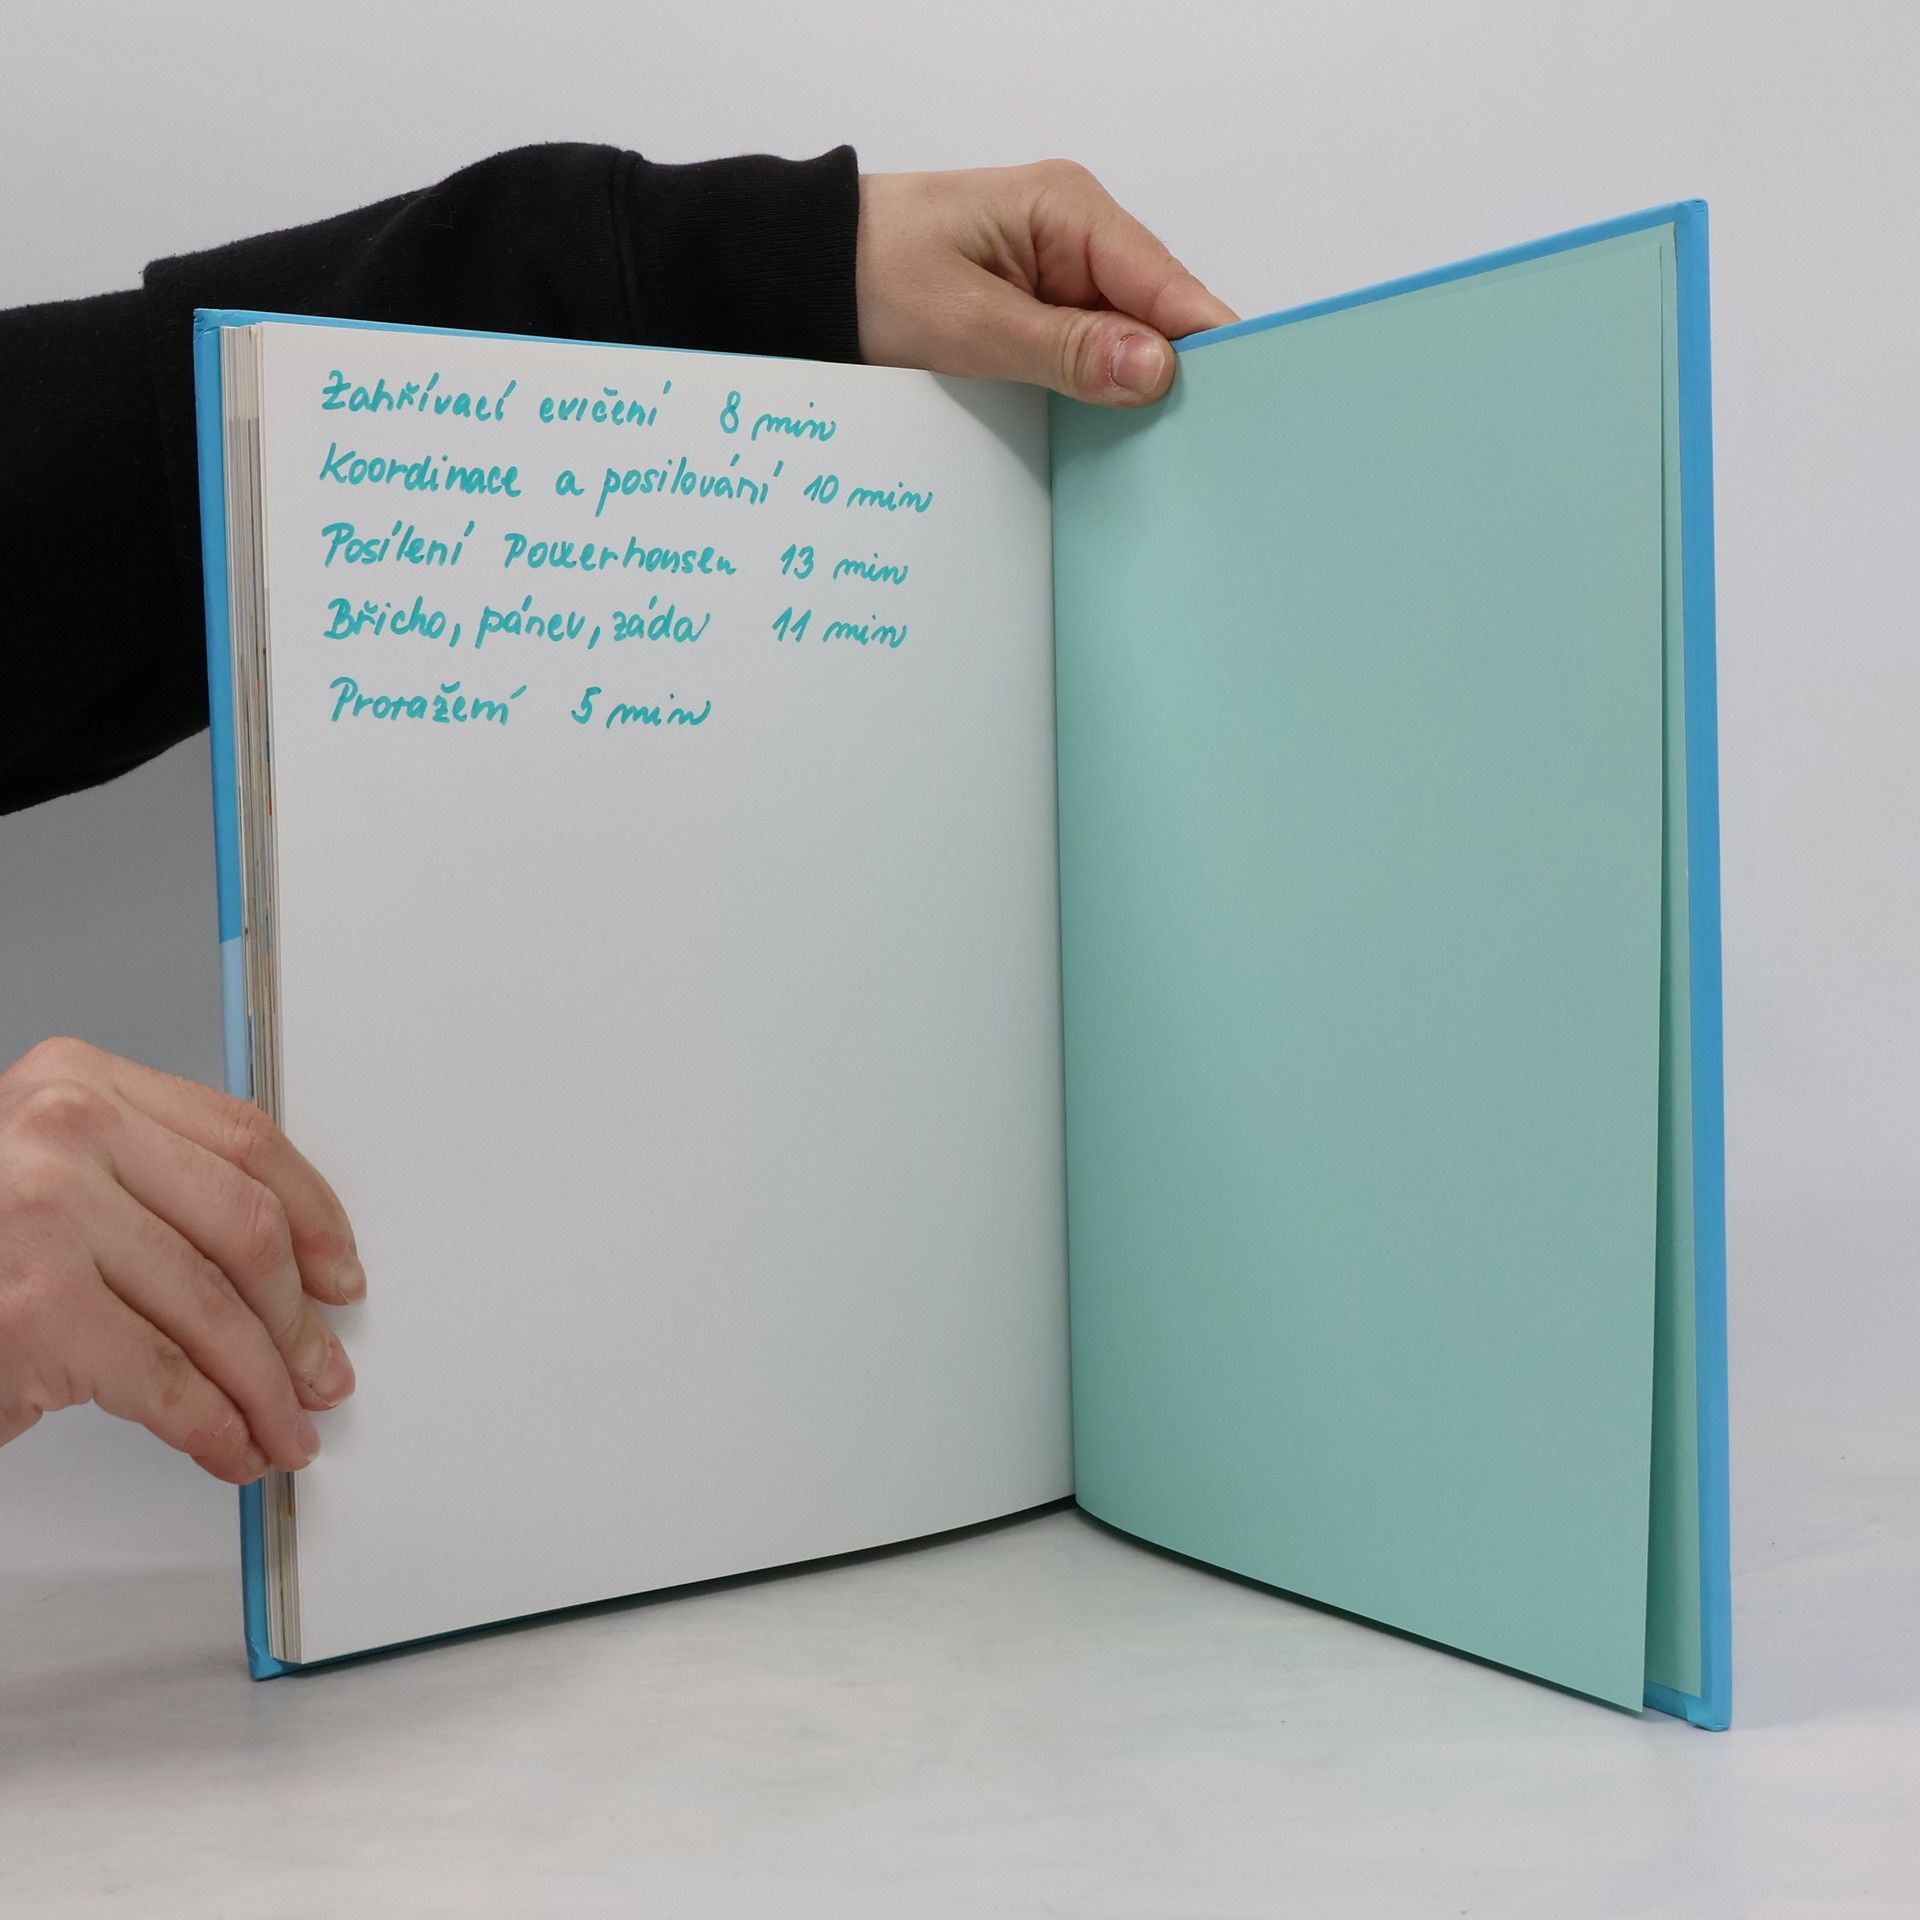 Zahřívací cvičení 8 min
Koordinace a posilování 10 min
Posílení Powerhousen 13 min
Břicho, pánev, záda 11 min
Protažení 5 min